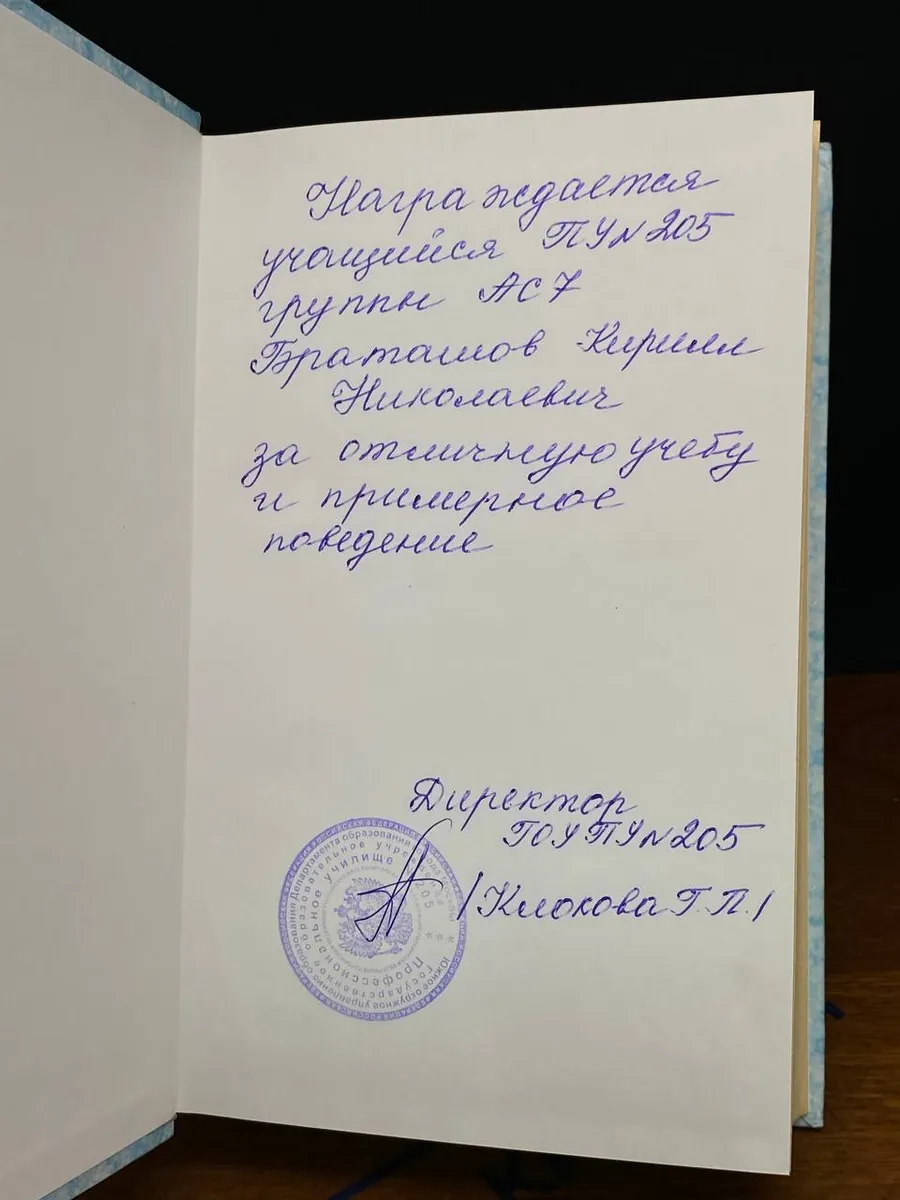 Награждается
учащийся ПУ№205
группы АС7
Браташов Кирилл
Николаевич
за отличную учебу
и примерное
поведение
Директор
ГОУПУ№205
/Клокова Г.П./
Южное окружное управление образования Департамента образования города Москвы
Государственное образовательное учреждение
Профессиональное училище 205